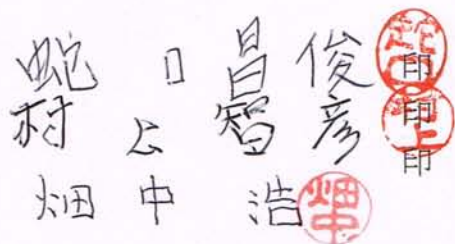 蛇口 昌俊 印
村上 智彦 印
畑中 浩 印
畑中